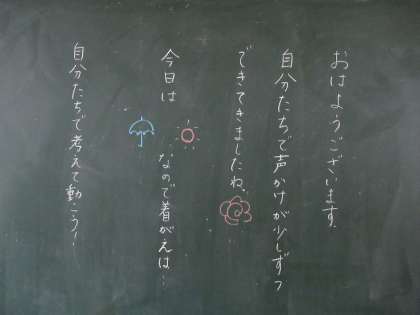 おはようございます。
自分たちで声かけが少しずつ
できてきましたね。
今日は
なので着がえは…
自分たちで考えて動こう!